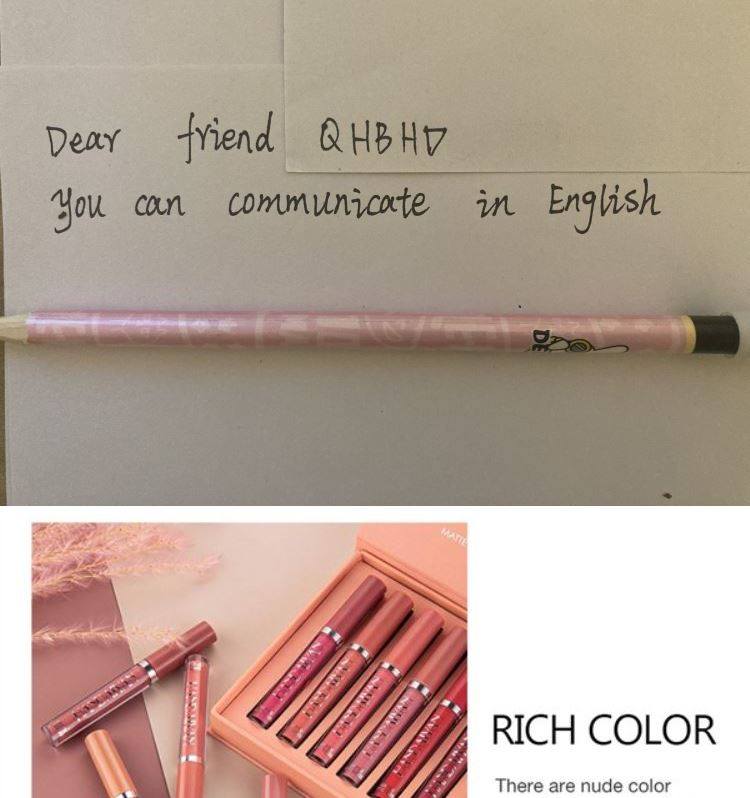 Dear friend QHBHD
You can communicate in English
DE
MATTE
RICH COLOR
There are nude color